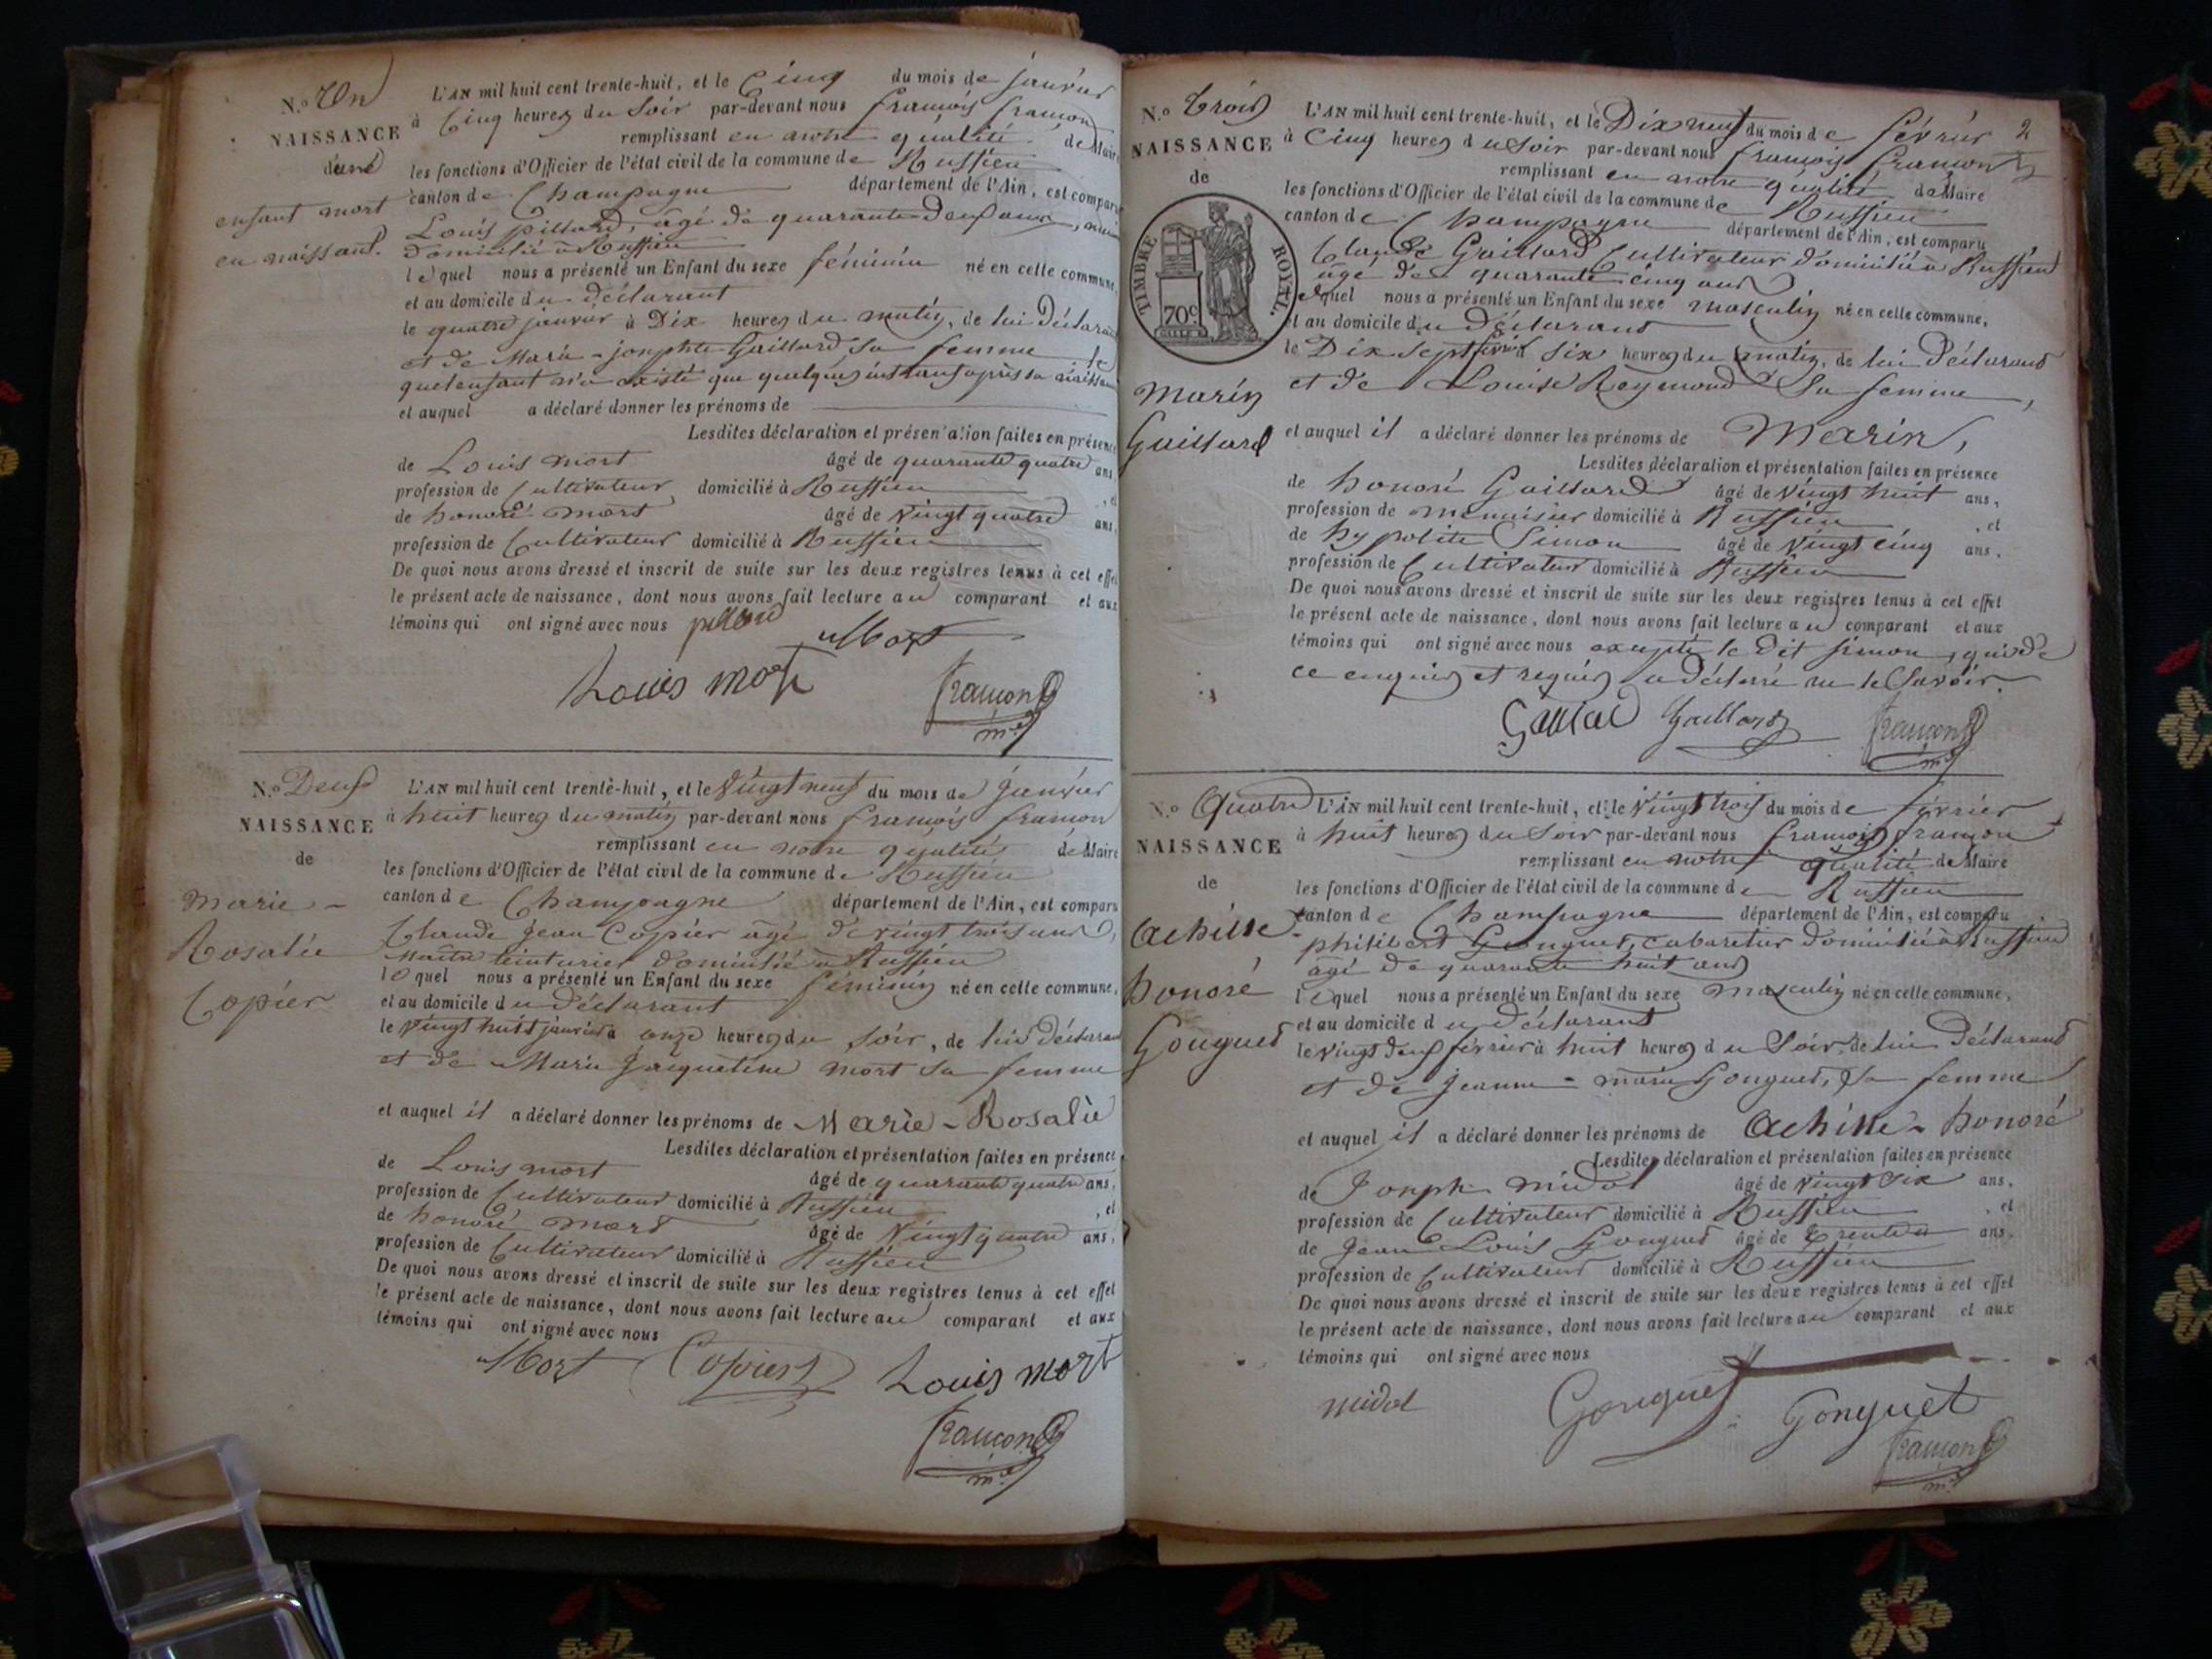 N.o Un
NAISSANCE
d'un
enfant mort
en naissant.
L'AN mil huit cent trente-huit, et le Cinq du mois de janvier
à Cinq heures du Soir par-devant nous françois françon
remplissant en notre qualité de Maire
les fonctions d'Officier de l'état civil de la commune de Ruffieu
canton de Champagne département de l'Ain, est comparu
Louis pillard, agé de quarante Deux ans,
Domicilié à Ruffieu
lequel nous a présenté un Enfant du sexe féminin né en cette commune,
et au domicile du déclarant
le quatre janvier à Dix heures du matin, de lui Déclarant
et de Marie-josephte Gaillard Sa femme le
quel enfant n'a existé que quelques instans après sa naissance
et auquel a déclaré donner les prénoms de
Lesdites déclaration et présentation faites en présence
de Louis mort âgé de quarante quatre ans,
profession de Cultivateur domicilié à Ruffieu , et
de honoré mort âgé de vingt quatre ans,
profession de Cultivateur domicilié à Ruffieu
De quoi nous avons dressé et inscrit de suite sur les deux registres tenus à cet effet
le présent acte de naissance, dont nous avons fait lecture au comparant et aux
témoins qui ont signé avec nous pillard
Mort
Louis mort françon
me
N.o Deux
NAISSANCE
de
Marie-
Rosalie
Copier
L'AN mil huit cent trente-huit, et le Vingt neuf du mois de janvier
à huit heures du matin par-devant nous françois françon
remplissant en notre qualité de Maire
les fonctions d'Officier de l'état civil de la commune de Ruffieu
canton de Champagne département de l'Ain, est comparu
Claude Jean Copier agé de vingt trois ans,
Maître teinturier Domicilié à Ruffieu
lequel nous a présenté un Enfant du sexe féminin né en cette commune,
et au domicile du déclarant
le vingt huit janvier à onze heures du soir, de lui Déclarant
et de Marie Jacqueline mort Sa femme
et auquel il a déclaré donner les prénoms de Marie-Rosalie
Lesdites déclaration et présentation faites en présence
de Louis mort âgé de quarante quatre ans,
profession de Cultivateur domicilié à Ruffieu , et
de honoré mort âgé de Vingt quatre ans,
profession de Cultivateur domicilié à Ruffieu
De quoi nous avons dressé et inscrit de suite sur les deux registres tenus à cet effet
le présent acte de naissance, dont nous avons fait lecture au comparant et aux
témoins qui ont signé avec nous
Mort Copier Louis mort
françon
me
2
N.o Trois
NAISSANCE
de
TIMBRE ROYAL.
70c
Marin
Gaillard
L'AN mil huit cent trente-huit, et le Dix neuf du mois de février
à Cinq heures du Soir par-devant nous françois françon
remplissant en notre qualité de Maire
les fonctions d'Officier de l'état civil de la commune de Ruffieu
canton de Champagne département de l'Ain, est comparu
Claude Gaillard Cultivateur domicilié à Ruffieu
agé de quarante cinq ans
lequel nous a présenté un Enfant du sexe masculin né en cette commune,
et au domicile du Déclarant
le Dix Sept février à Six heures du matin, de lui Déclarant
et de Louise Reymond Sa femme,
et auquel il a déclaré donner les prénoms de Marin,
Lesdites déclaration et présentation faites en présence
de honoré Gaillard âgé de Vingt huit ans,
profession de menuisier domicilié à Ruffieu , et
de hypolite Simon âgé de vingt cinq ans,
profession de Cultivateur domicilié à Ruffieu
De quoi nous avons dressé et inscrit de suite sur les deux registres tenus à cet effet
le présent acte de naissance, dont nous avons fait lecture au comparant et aux
témoins qui ont signé avec nous excepté le dit Simon, qui de
ce enquis et requis a déclaré ne le Savoir.
Gaillard françon
me
N.o Quatre
NAISSANCE
de
Achille-
honoré
Gonguet
L'AN mil huit cent trente-huit, et le Vingt trois du mois de février
à huit heures du Soir par-devant nous françois françon
remplissant en notre qualité de Maire
les fonctions d'Officier de l'état civil de la commune de Ruffieu
canton de Champagne département de l'Ain, est comparu
philibert Gonguet, cabaretier domicilié à Ruffieu
agé de quarante huit ans
lequel nous a présenté un Enfant du sexe masculin né en cette commune,
et au domicile du déclarant
le Vingt deux février à huit heures du Soir, de lui Déclarant
et de Jeanne-marie Gonguet, Sa femme
et auquel il a déclaré donner les prénoms de Achille-honoré
Lesdites déclaration et présentation faites en présence
de Joseph midol âgé de Vingt Six ans,
profession de Cultivateur domicilié à Ruffieu , et
de Jean Louis Gonguet âgé de Trente ans,
profession de Cultivateur domicilié à Ruffieu
De quoi nous avons dressé et inscrit de suite sur les deux registres tenus à cet effet
le présent acte de naissance, dont nous avons fait lecture au comparant et aux
témoins qui ont signé avec nous
midol Gonguet Gonguet
françon
me